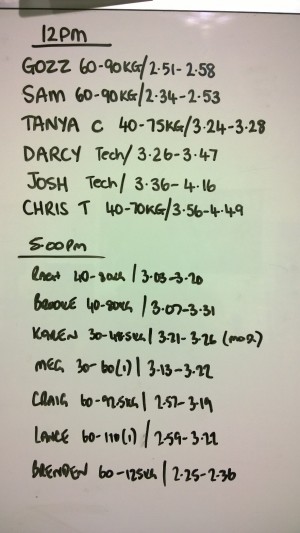 12PM
GOZZ 60-90KG/2.51-2.58
SAM 60-90KG/2.34-2.53
TANYA C 40-75KG/3.24-3.28
DARCY Tech/3.26-3.47
JOSH Tech/3.36-4.16
CHRIS T 40-70KG/3.56-4.49
5:00PM
40-80KG / 3.03-3.20
BROOKE 40-80KG / 3.07-3.31
KAREN 30-48.5KG / 3.21-3.26
MEG 30-60(1) | 3.13-3.22
CRAIG 60-92.5KG | 2.57-3.19
LANCE 60-110(1) / 2.59-3.22
BRENDEN 60-125KG | 2.25-2.36